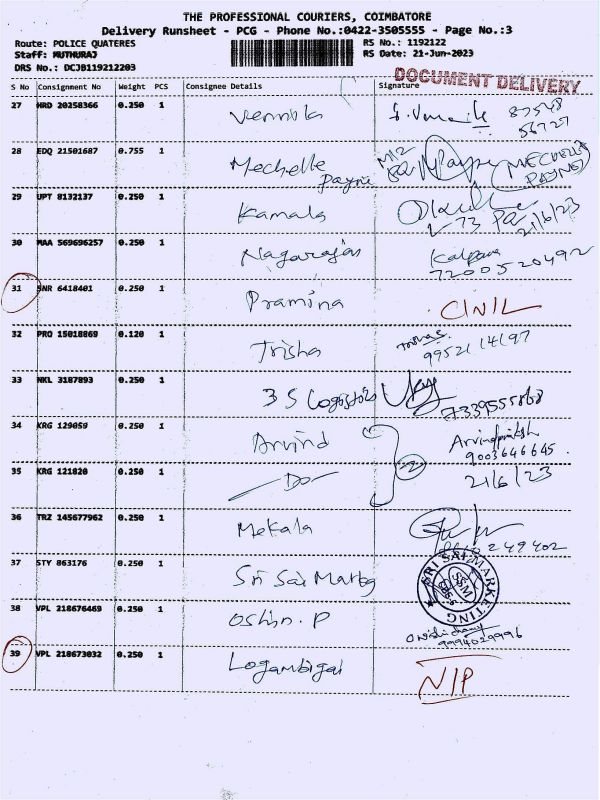 THE PROFESSIONAL COURIERS, COIMBATORE
Delivery Runsheet - PCG - Phone No.:0422-3505555 - Page No.:3
Route: POLICE QUATERES
Staff: MUTHURAJ
DRS No.: DCJB119212203
RS No.: 1192122
RS Date: 21-Jun-2023
DOCUMENT DELIVERY
S No Consignment No Weight PCS Consignee Details Signature
27 HRD 20258366 0.250 1 Vennila 87548
56727
28 EDQ 21501687 0.755 1 Mechelle Payne
MECHELLE PAYNE
29 UPT 8132137 0.250 1 Kamala
21/6/23
30 MAA 569696257 0.250 1 Nagarajan Kalpana
7200520492
31 SNR 6418401 0.250 1 Pramina C/NIL
32 PRO 15018869 0.120 1 Trisha
9952114197
33 NKL 3187893 0.250 1 3 S Logistics 7339555868
34 KRG 129059 0.250 1 Arvind
9003646645
35 KRG 121820 0.250 1 Do 21/6/23
36 TRZ 145677962 0.250 1 Mekala
249402
37 STY 863176 0.250 1 Sri Sai Marktg
SRI SAI MARKETING
38 VPL 218676469 0.250 1 Oshin. P
9994029996
39 VPL 218673032 0.250 1 Logambigai N/P